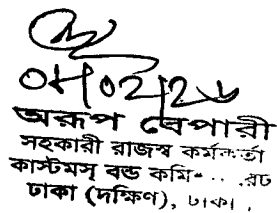 ০৮/০২/২৬
অরূপ বেপারী
সহকারী রাজস্ব কর্মকর্তা
কাস্টমস্ বন্ড কমি
ঢাকা (দক্ষিণ), ঢাকা.